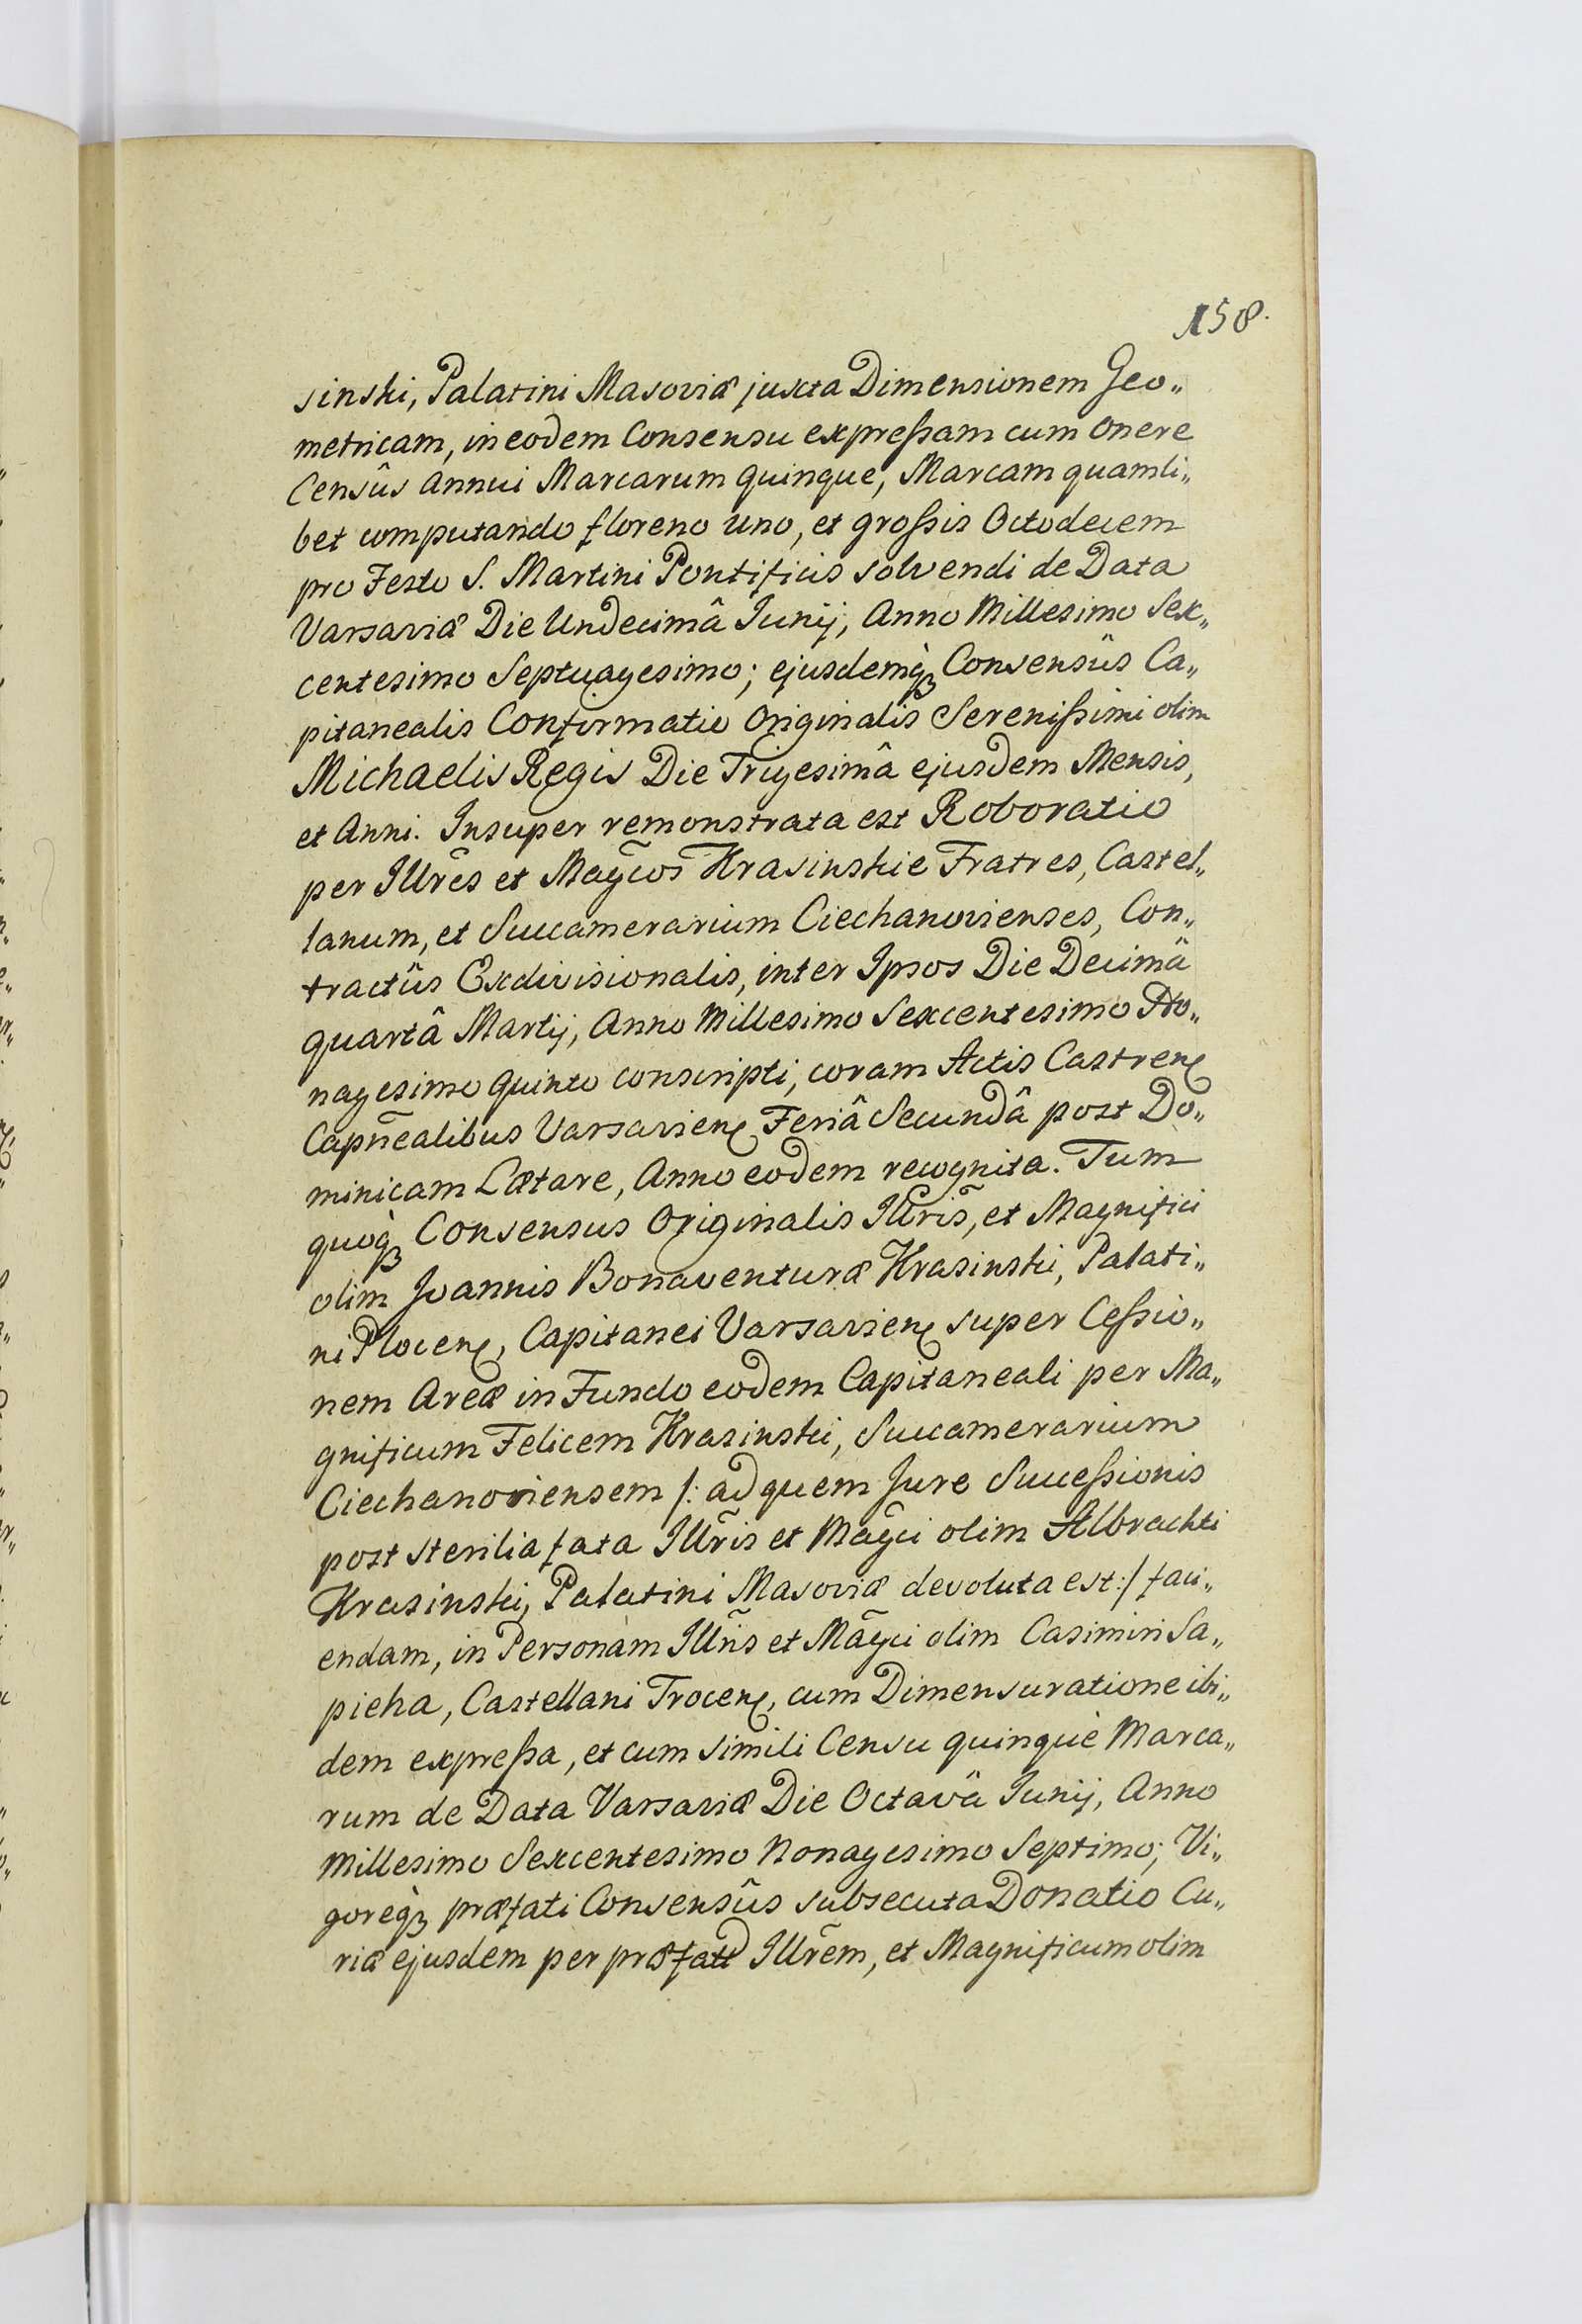 158.
sinski, Palatini Masoviæ juxta Dimensionem Geo„
metricam, in eodem Consensu expreßam cum Onere
Censûs Annui Marcarum quinque, Marcam quamli„
bet computando floreno uno, et großis Octodecem
pro Festo S. Martini Pontificis solvendi de Data
Varsaviæ Die Undecimâ Junij, Anno Millesimo Sex„
centesimo Septuagesimo; ejusdemq̀ꝫ Consensûs Ca„
pitanealis Confirmatio Originalis Serenißimi olim
Michaelis Regis Die Trigesimâ ejusdem Mensis,
et Anni. Insuper remonstrata est Roboratio
per Illr̃es et Mag̃cos Krasinskie Fratres, Castel„
lanum, et Succamerarium Ciechanovienses, Con„
tractûs Exdivisionalis, inter Ipsos Die Decimâ
quartâ Martij, Anno Millesimo Sexcentesimo No„
nagesimo quinto conscripti, coram Actis Castrenꝭ
Capñealibus Varsavienꝭ Feriâ Secundâ post Do„
minicam Lætare, Anno eodem recognita. Tum
quoq̀ꝫ Consensus Originalis Illr̃is, et Magnifici
olim Joannis Bonaventuræ Krasinski, Palati„
ni Plocenꝭ, Capitanei Varsavienꝭ super Ceßio„
nem Areæ in Fundo eodem Capitaneali per Ma„
gnificum Felicem Krasinski, Succamerarium
Ciechanoviensem /: ad quem Jure Succeßionis
post sterilia fata Illr̃is et Mag̃ci olim Albrachti
Krasinski, Palatini Masoviæ devoluta est :/ faci„
endam, in Personam Illr̃is et Mag̃ci olim Casimiri Sa„
pieha, Castellani Trocenꝭ, cum Dimensuratione ibi„
dem expreßa, et cum simili Censu quinquè Marca„
rum de Data Varsaviæ Die Octavâ Junij, Anno
Millesimo Sexcentesimo Nonagesimo Septimo; Vi„
goreq̀ꝫ præfati Consensûs subsecuta Donatio Cu„
riæ ejusdem per præfatũ Illr̃em, et Magnificum olim